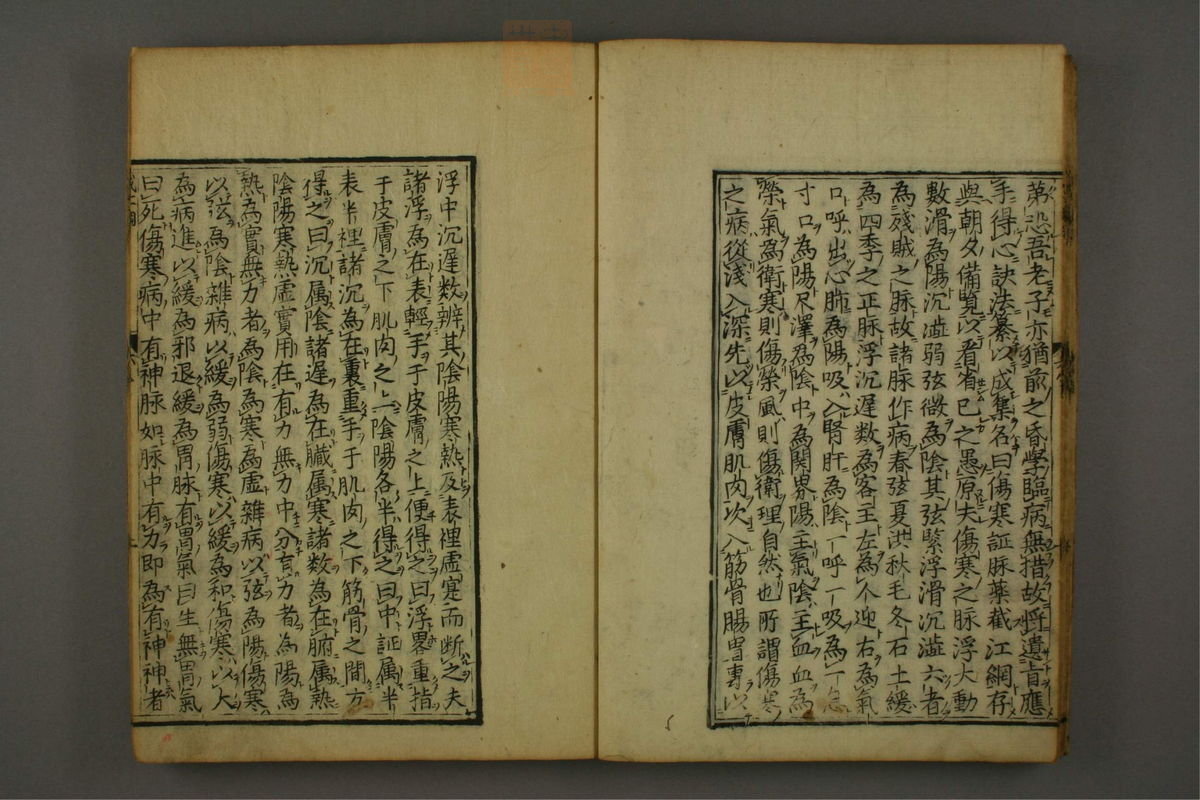 第恐吾老子亦猶前之昏學臨病無措故將遺旨應
手得心訣法纂以成集名曰傷寒証脉藥截江網存
與朝夕備覽以看省已之愚原夫傷寒之脉浮大動
數滑為陽沉澁弱弦微為陰其弦緊浮滑沉澁六者
為殘賊之脉故諸脉作病春弦夏洪秋毛冬石土緩
為四季之正脉浮沉遲数為客主左為人迎右為氣
口呼出心肺為陽吸入腎肝為陰一呼一吸為一息
寸口為陽尺澤為陰中為関界陽主氣陰主血血為
榮氣為衛寒則傷榮風則傷衛理自然也所謂傷寒
之病從淺入深先以皮膚肌肉次入筋骨腸胃專以
浮中沉遲数辨其陰陽寒熱及表裡虚寔而断之夫
諸浮為在表輕手于皮膚之上便得之曰浮畧重指
于皮膚之下肌肉之上陰陽各半得之曰中証属半
表半裡諸沉為在裏重手于肌肉之下筋骨之間方
得之曰沉属陰諸遲為在臓属寒諸数為在腑属熱
陰陽寒熱虚實用在有力無力中分有力者為陽為
熱為實無力者為陰為寒為虚雜病以弦為陽傷寒
以弦為陰雜病以緩為弱傷寒以緩為和傷寒以大
為病進以緩為邪退緩為胃脉有胃氣曰生無胃氣
曰死傷寒病中有神脉如脉中有力即為有神神者